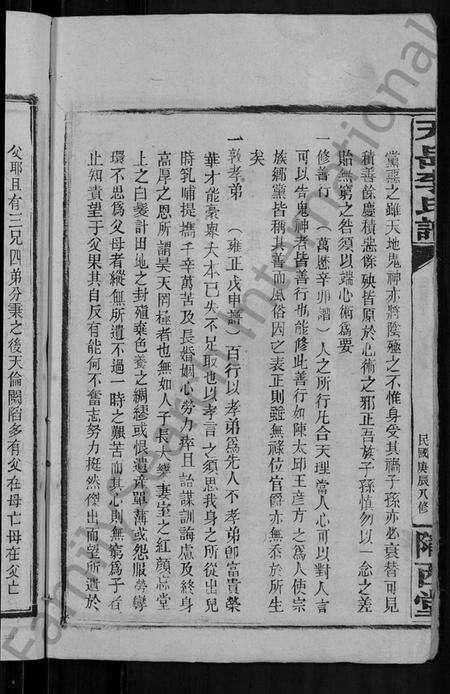 天岳李氏譜
民國庚辰八修
隴西堂
黨惡之雖天地鬼神亦將陰殛之不惟身受其禍子孫亦必衰替可見
積善餘慶積惡餘殃皆原於心術之邪正吾族子孫慎勿以一念之差
貽無窮之咎須以端心術爲要
一修善行（萬歷辛卯譜）人之所行凡合天理當人心可以對人言
可以告鬼神者皆善行也能修此善行如陳太邱王彥方之爲人使宗
族鄉黨皆稱其善而風俗因之表正則雖無祿位官爵亦無忝於所生
矣
一敦孝弟（雍正戊申譜）百行以孝弟爲先人不孝弟卽富貴榮
華才能豪東大本已失不足取也以孝言之須思我身之所從出兒
時乳哺提攜千辛萬苦及長婚姻心勞力瘁且詒謀訓誨慮及終身
高厚之恩所謂昊天罔極者也無如人子長大戀妻室之紅顏忘堂
上之白髮計田地之封殖棄色養之綢繆或恨遺產單薄或怨服勞
環不思爲父母者縱無所遺不過一時之艱苦而其心則無窮爲子者
止知責望于父果其自反有能何不奮志努力挺然傑出而望所遺於
父耶且有三兄四弟分爨之後天倫闊陷多有父在母亡母在父亡
Family Search International